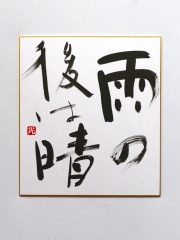 雨の
後は晴